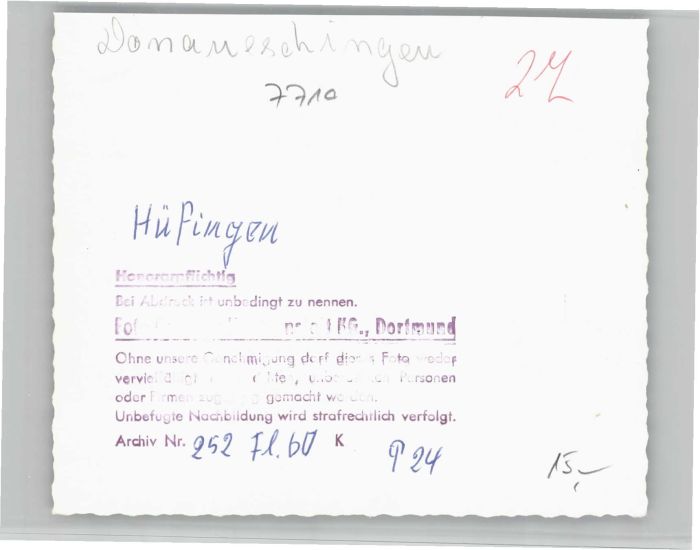 Donaueschingen
7710
27
Hüfingen
Honorarpflichtig
Bei Abdruck ist unbedingt zu nennen.
KG., Dortmund
Ohne unsere Genehmigung darf dieses Foto weder
oder Firmen zugängig gemacht werden.
Unbefugte Nachbildung wird strafrechtlich verfolgt.
Archiv Nr. 252 Fl. 60 K P 24
15,-